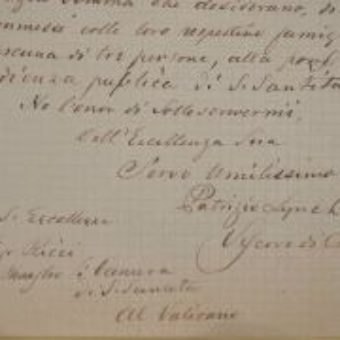 che desiderano, di
colle loro respettive famig
ascuna di tre persone, alla
dienza pubblica di S. Santità
Ho l'onor di sottoscrivermi,
Dell'Eccellenza Sua
Servo Umilissimo
Patrizio Lynch
Vescovo di C
S. Eccellenza
Ricci
Maestro di Camera
di S. Santità
Al Vaticano